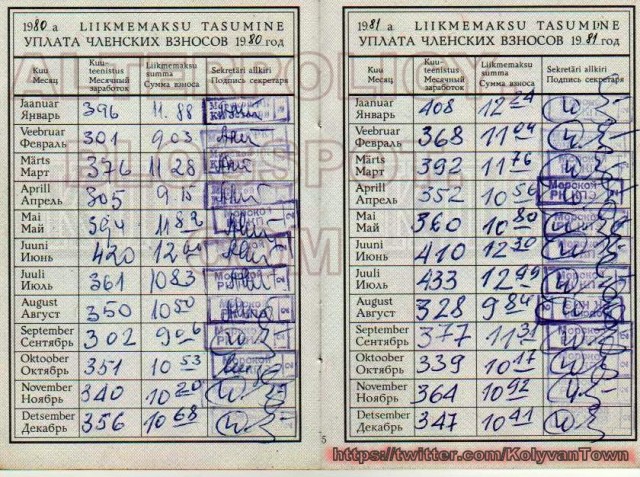 1980 a LIIKMEMAKSU TASUMINE
УПЛАТА ЧЛЕНСКИХ ВЗНОСОВ 1980 ГОД
Kuu Месяц Kuu-teenistus Месячный заработок Liikmemaksu summa Сумма взноса Sekretäri allkiri Подпись секретаря
Jaanuar Январь 396 11.88
Veebruar Февраль 301 9 03
Märts Март 376 11 28
Aprill Апрель 305 9.15
Mai Май 394 11 82
Juuni Июнь 420 12 60
Juuli Июль 361 10 83 Морской
August Август 350 10 50
September Сентябрь 302 9 06
Oktoober Октябрь 351 10 53
November Ноябрь 340 10 20
Detsember Декабрь 356 10 68
5
1981 a LIIKMEMAKSU TASUMINE
УПЛАТА ЧЛЕНСКИХ ВЗНОСОВ 1981 ГОД
Kuu Месяц Kuu-teenistus Месячный заработок Liikmemaksu summa Сумма взноса Sekretäri allkiri Подпись секретаря
Jaanuar Январь 408 12 24
Veebruar Февраль 368 11 04
Märts Март 392 11 76
Aprill Апрель 352 10 56 Морской РК КПЭ
Mai Май 360 10 80
Juuni Июнь 410 12 30
Juuli Июль 433 12 99
August Август 328 9 84
September Сентябрь 377 11 31
Oktoober Октябрь 339 10 17
November Ноябрь 364 10 92
Detsember Декабрь 347 10 41
https://twitter.com/KolyvanTown